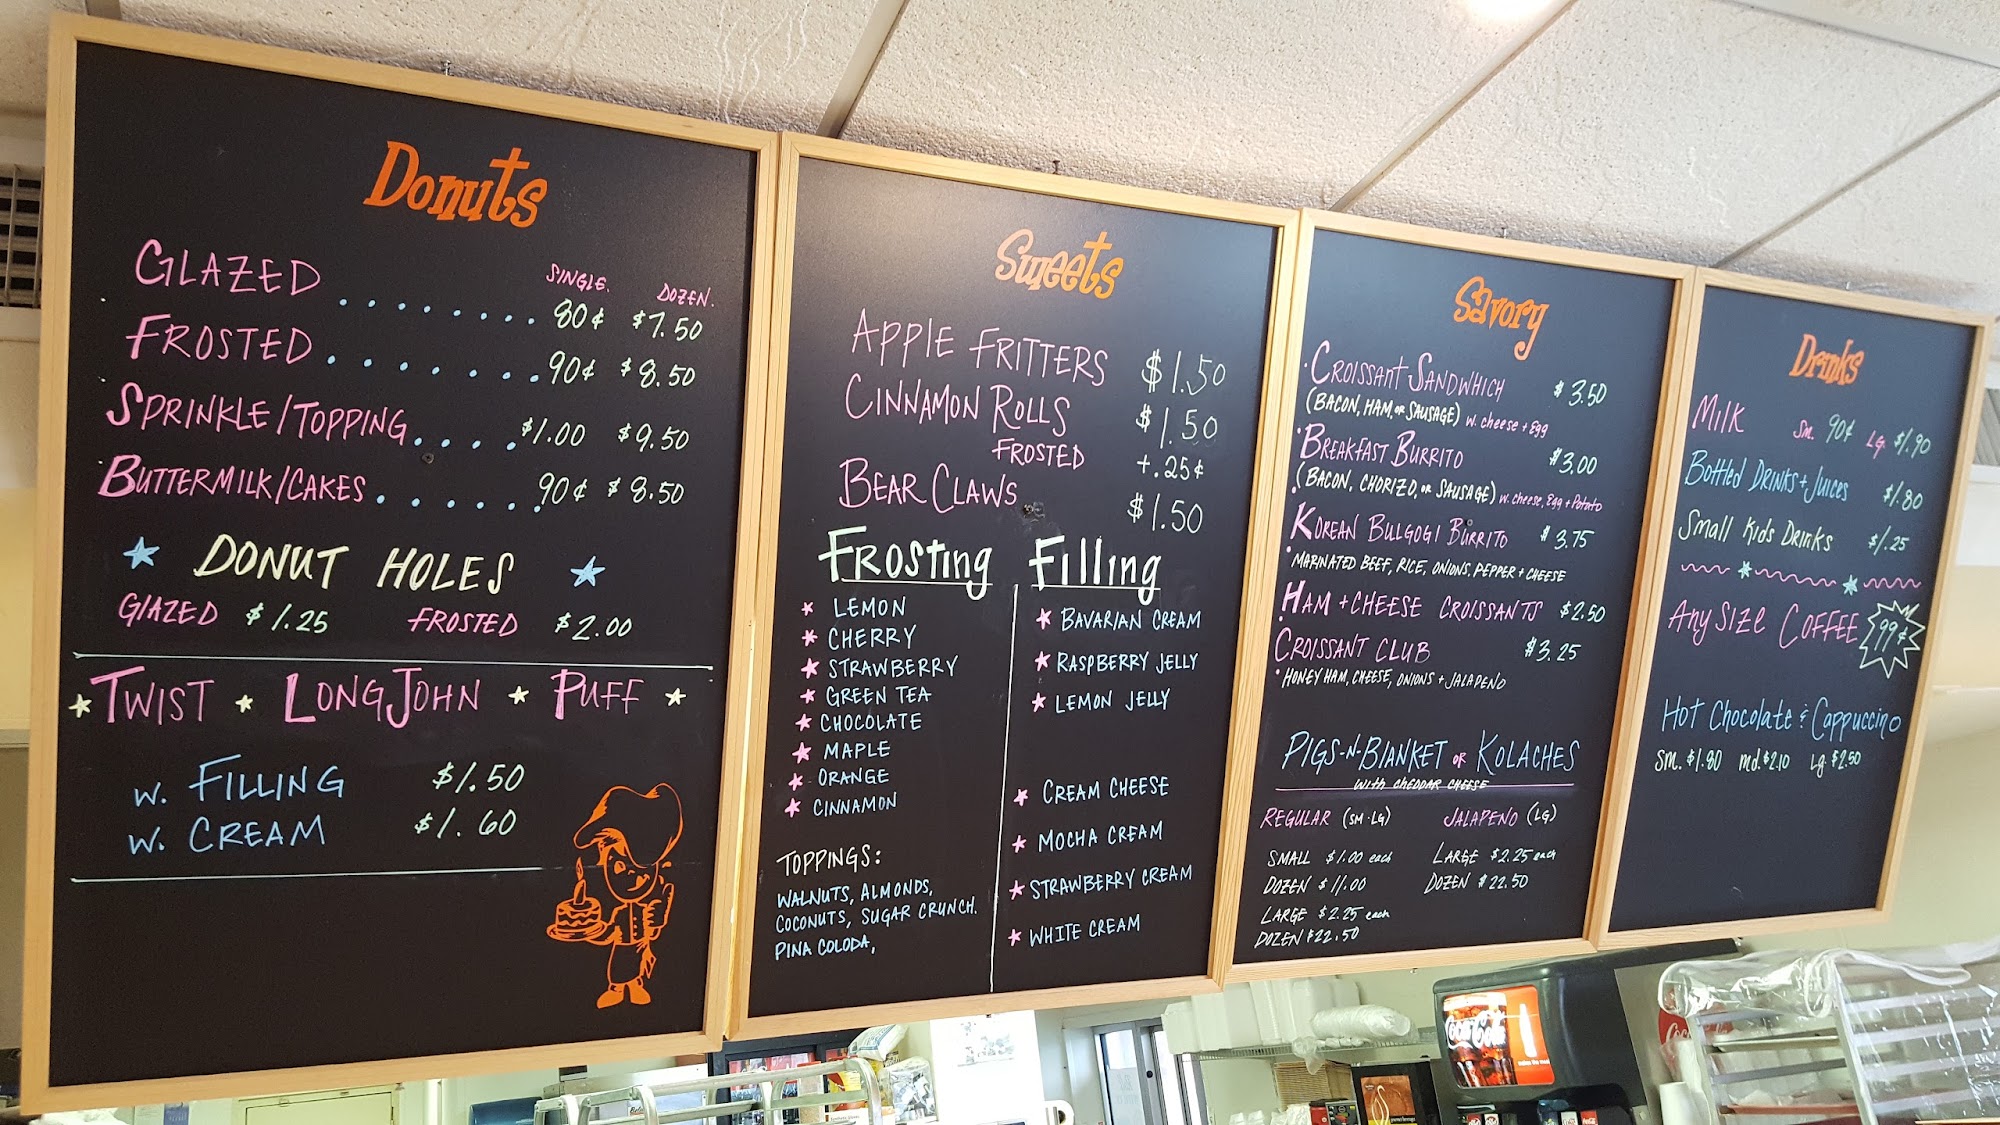 Donuts
SINGLE. DOZEN.
GLAZED ........ 80¢ $7.50
FROSTED ....... 90¢ $8.50
SPRINKLE/TOPPING .... $1.00 $9.50
BUTTERMILK/CAKES ...... 90¢ $8.50
DONUT HOLES
GLAZED $1.25 FROSTED $2.00
TWIST LONG JOHN PUFF
w. FILLING $1.50
w. CREAM $1.60
Sweets
APPLE FRITTERS $1.50
CINNAMON ROLLS $1.50
FROSTED +.25¢
BEAR CLAWS $1.50
Frosting
LEMON
CHERRY
STRAWBERRY
GREEN TEA
CHOCOLATE
MAPLE
ORANGE
CINNAMON
TOPPINGS:
WALNUTS, ALMONDS,
COCONUTS, SUGAR CRUNCH.
PINA COLODA,
Filling
BAVARIAN CREAM
RASPBERRY JELLY
LEMON JELLY
CREAM CHEESE
MOCHA CREAM
STRAWBERRY CREAM
WHITE CREAM
Savory
CROISSANT SANDWHICH $3.50
(BACON, HAM, or SAUSAGE) w. cheese + Egg
BREAKFAST BURRITO $3.00
(BACON, CHORIZO, or SAUSAGE) w. cheese, Egg + Potato
KOREAN BULGOGI BURRITO $3.75
MARINATED BEEF, RICE, ONIONS, PEPPER + CHEESE
HAM + CHEESE CROISSANTS $2.50
CROISSANT CLUB $3.25
HONEY HAM, CHEESE, ONIONS + JALAPENO
PIGS-N-BLANKET or KOLACHES
with CHEDDAR CHEESE
REGULAR (SM·LG) JALAPENO (LG)
SMALL $1.00 each LARGE $2.25 each
DOZEN $11.00 DOZEN $22.50
LARGE $2.25 each
DOZEN $22.50
Drinks
MILK Sm. 90¢ LG. $1.90
Bottled DRINKS + Juices $1.80
Small Kids Drinks $1.25
Any Size COFFEE 99¢
Hot Chocolate & Cappuccino
Sm. $1.80 md. $2.10 Lg. $2.50
Coca-Cola